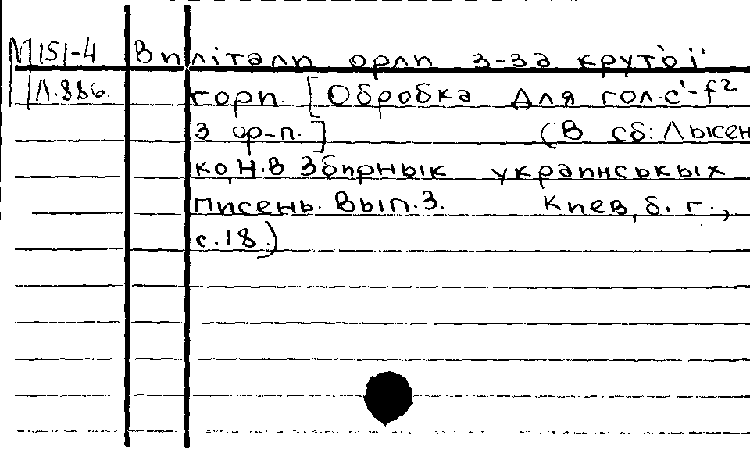 М151-4 Виліталы орлы з-за крутоі
Л.886. горы. [Обробка для гол. с¹-f²
з ф-п.] (В сб: Лысен
ко, Н.В Збирнык украинськых
писень. Вып.3. Киев, б. г.,
с.18.)